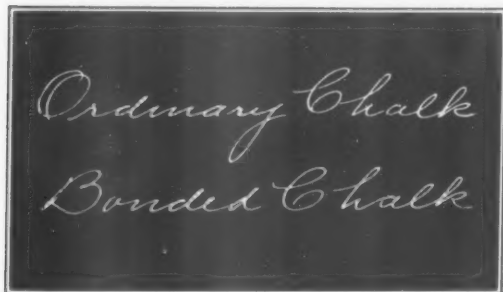 Ordinary Chalk
Bonded Chalk